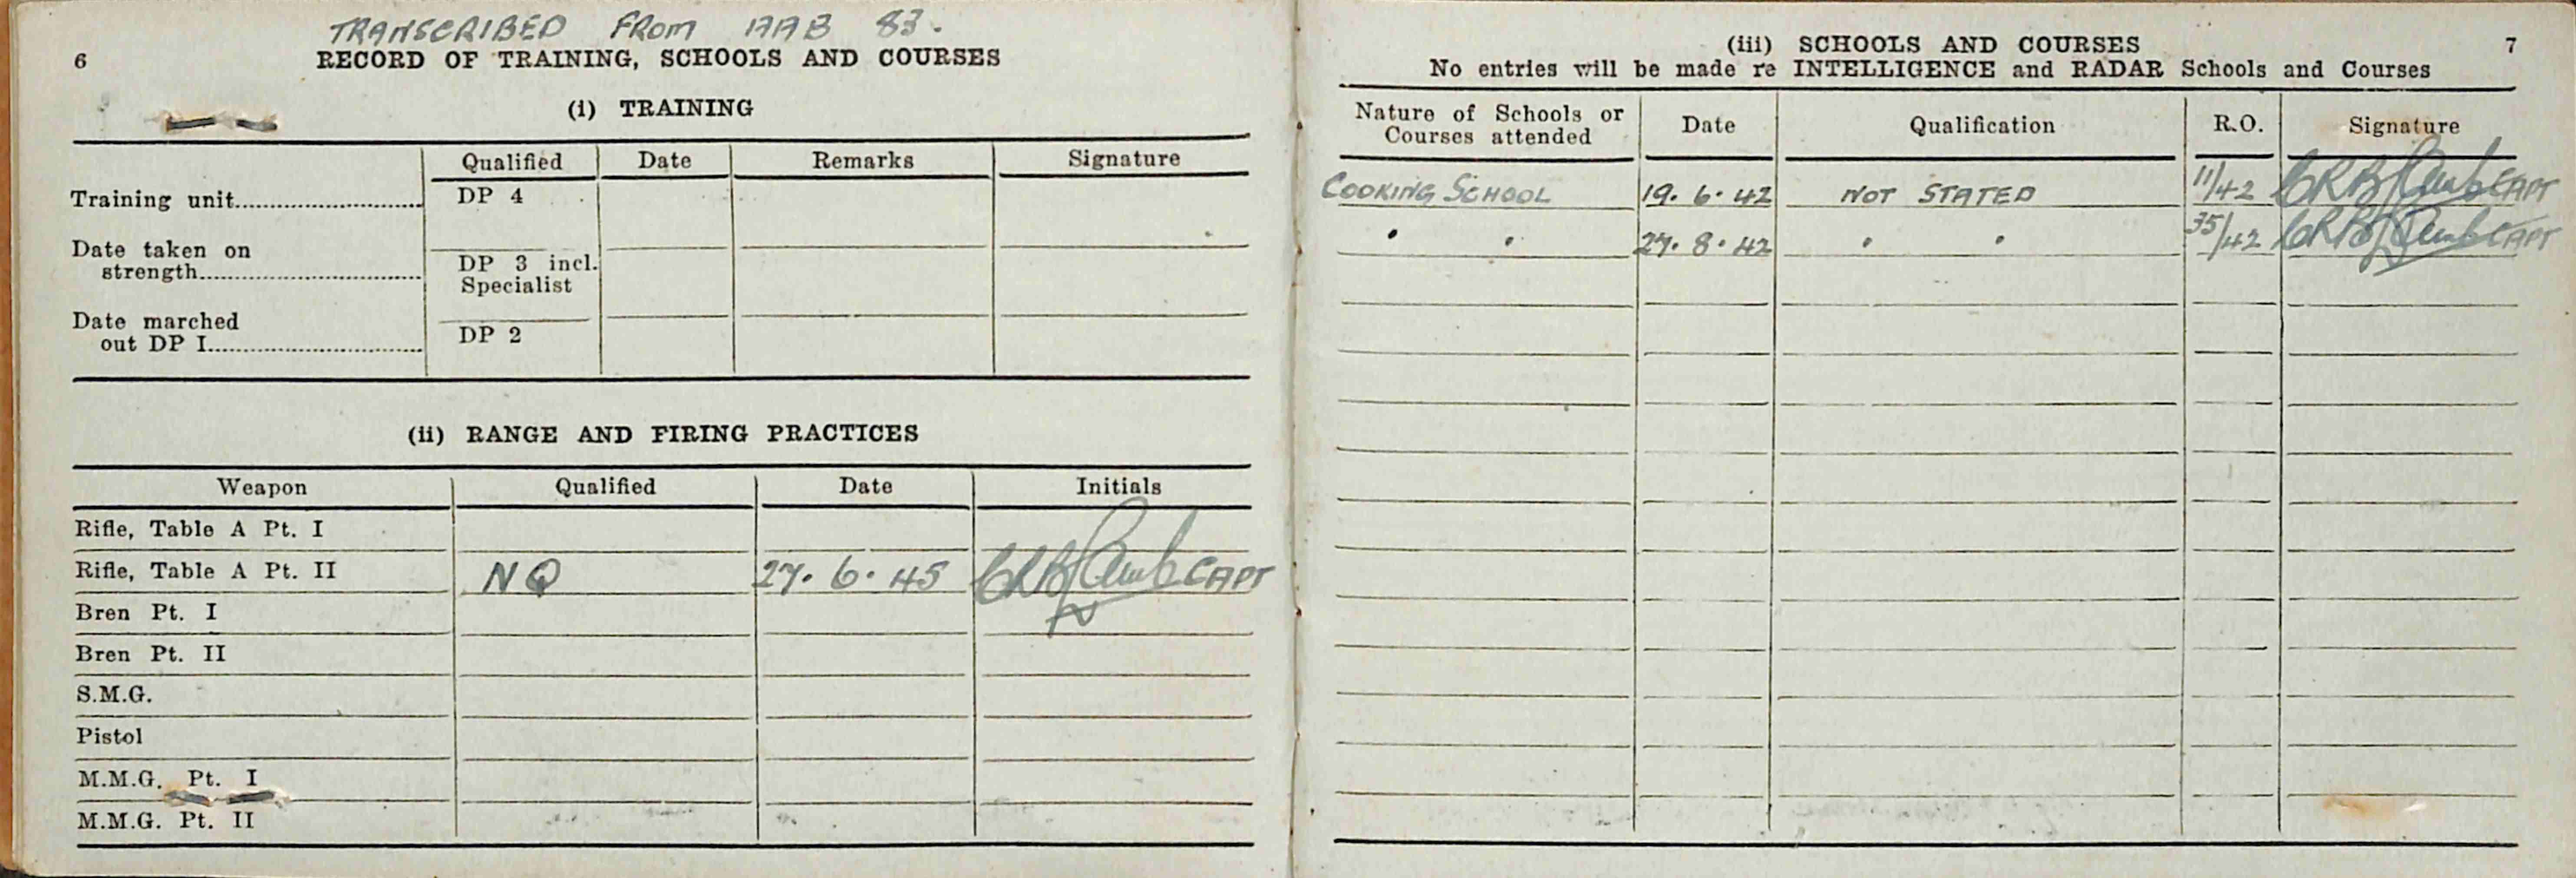 TRANSCRIBED FROM AAB 83.
6
RECORD OF TRAINING, SCHOOLS AND COURSES
(i) TRAINING
Qualified Date Remarks Signature
Training unit DP 4
Date taken on
strength
DP 3 incl.
Specialist
Date marched
out DP I
DP 2
(ii) RANGE AND FIRING PRACTICES
Weapon Qualified Date Initials
Rifle, Table A Pt. I
Rifle, Table A Pt. II NQ 27. 6. 45 CAPT
Bren Pt. I
Bren Pt. II
S.M.G.
Pistol
M.M.G. Pt. I
M.M.G. Pt. II
(iii) SCHOOLS AND COURSES
7
No entries will be made re INTELLIGENCE and RADAR Schools and Courses
Nature of Schools or
Courses attended
Date Qualification R.O. Signature
COOKING SCHOOL 19. 6. 42 NOT STATED 11/42 CAPT
" " 27. 8. 42 " " 35/42 CAPT